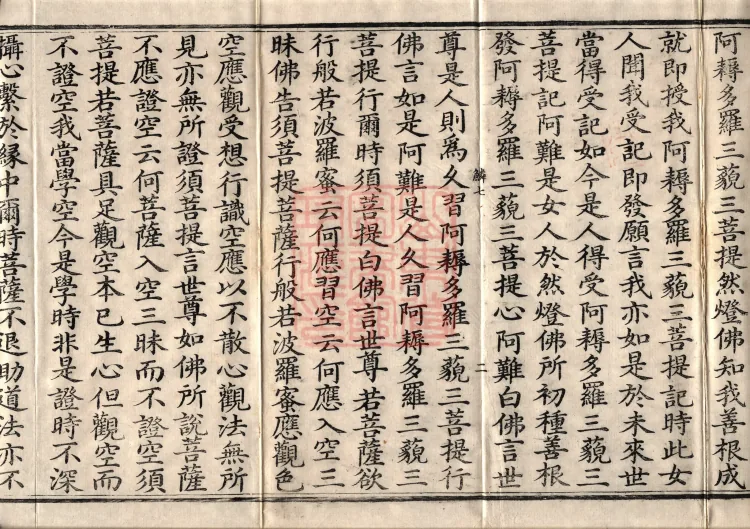 阿耨多羅三藐三菩提然燈佛知我善根成
就即授我阿耨多羅三藐三菩提記時此女
人聞我受記即發願言我亦如是於未來世
當得受記如今是人得受阿耨多羅三藐三
菩提記阿難是女人於然燈佛所初種善根
發阿耨多羅三藐三菩提心阿難白佛言世
鱗七
二
尊是人則為久習阿耨多羅三藐三菩提行
佛言如是阿難是人久習阿耨多羅三藐三
菩提行爾時須菩提白佛言世尊若菩薩欲
行般若波羅蜜云何應習空云何應入空三
昧佛告須菩提菩薩行般若波羅蜜應觀色
空應觀受想行識空應以不散心觀法無所
見亦無所證須菩提言世尊如佛所說菩薩
不應證空云何菩薩入空三昧而不證空須
菩提若菩薩具足觀空本已生心但觀空而
不證空我當學空今是學時非是證時不深
攝心繫於緣中爾時菩薩不退助道法亦不